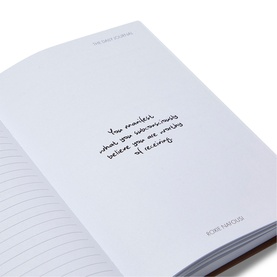 THE DAILY JOURNAL
You manifest
what you subconsciously
believe you are worthy
of receiving
ROXIE NAFOUSI